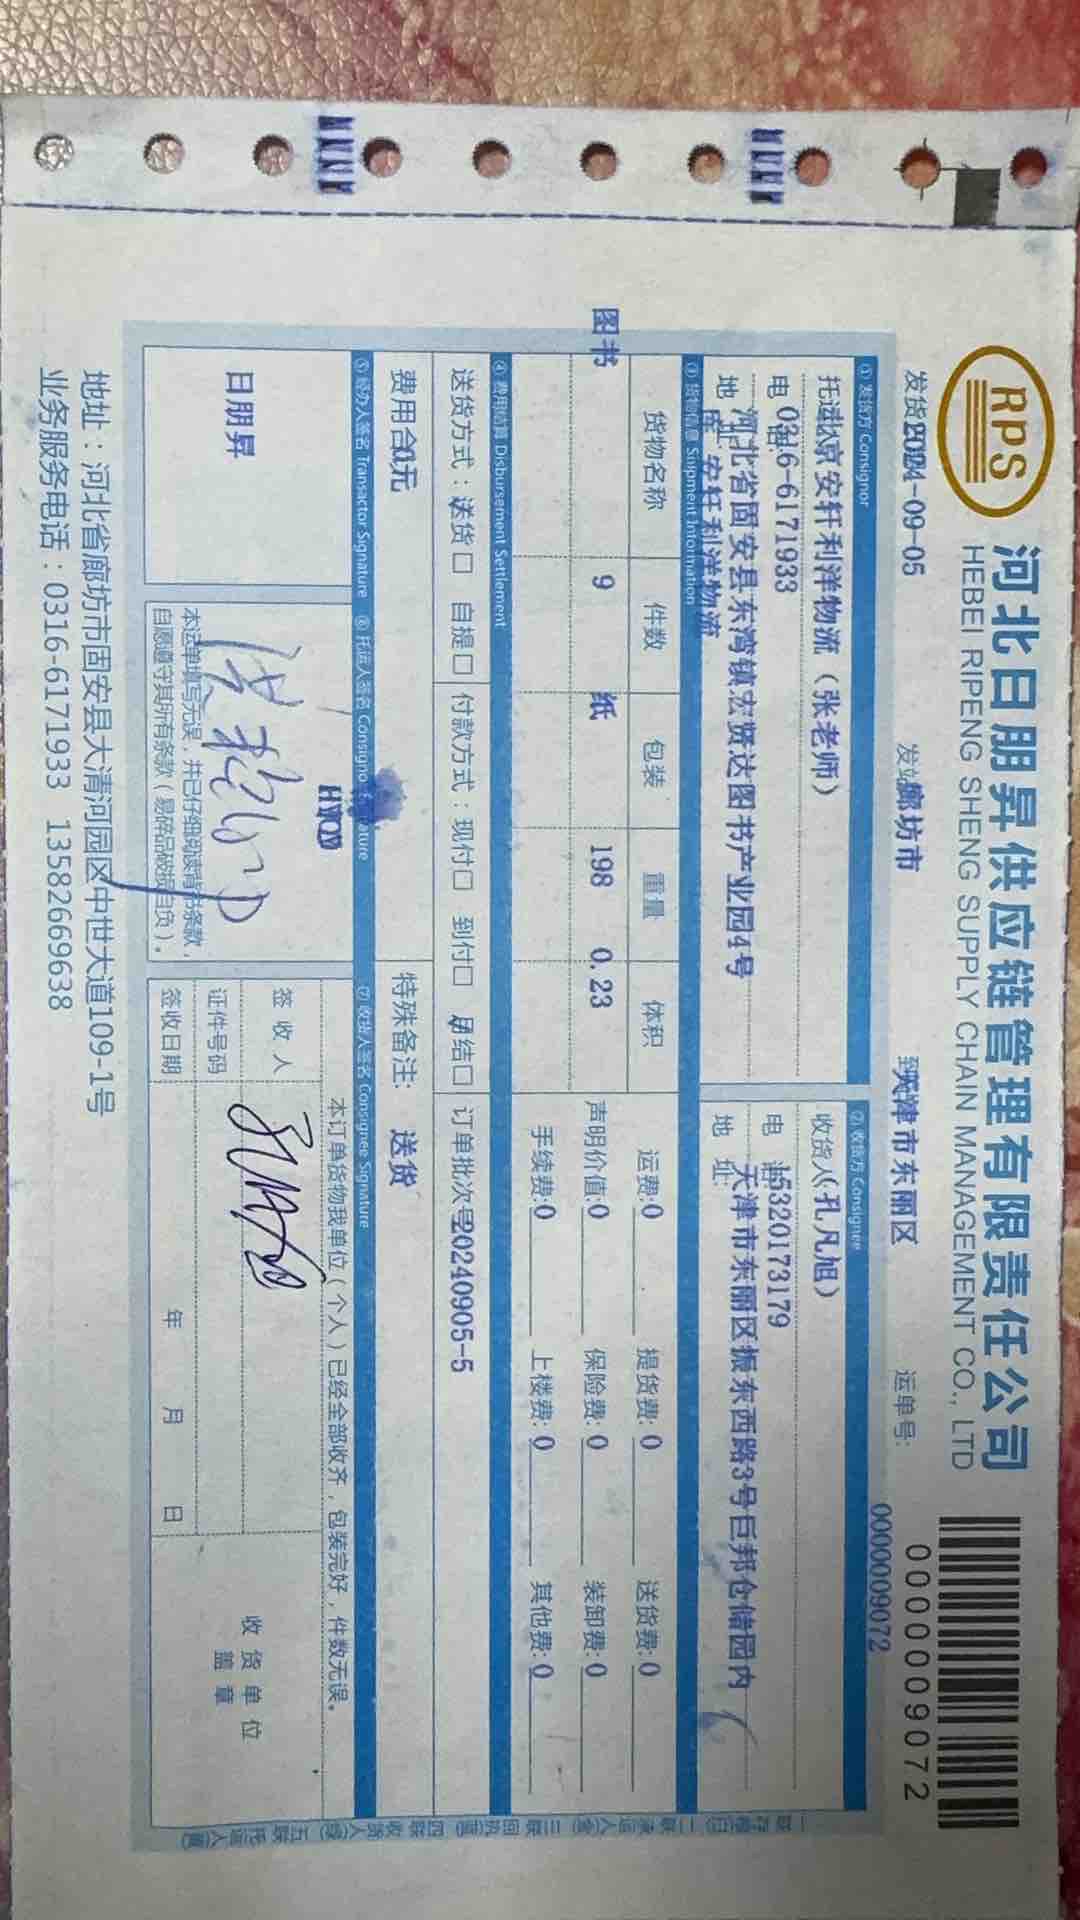 RPS
河北日朋昇供应链管理有限责任公司
HEBEI RIPENG SHENG SUPPLY CHAIN MANAGEMENT CO., LTD
0000009072
0000009072
发货 2024-09-05 发站 廊坊市 到 天津市东丽区 运单号:
① 发货方 Consignor ② 收货方 Consignee
托运 北京安轩利洋物流（张老师） 收货人（孔凡旭）
电话 0316-6171933 电话 15320173179
地址 河北省固安县东湾镇宏贤达图书产业园4号库 安轩利洋物流
地址: 天津市东丽区振东西路3号巨邦仓储园内
③ 货物信息 Shipment Information
货物名称 件数 包装 重量 体积
图书 9 纸 198 0.23
运费:0 提货费:0 送货费:0
声明价值:0 保险费:0 装卸费:0
手续费:0 上楼费:0 其他费:0
④ 费用结算 Disbursement Settlement
送货方式：送货□ 自提□ 付款方式：现付□ 到付□ 月结□ 订单批次号 20240905-5
费用合 0元 特殊备注: 送货
⑤ 经办人签名 Transactor Signature ⑥ 托运人签名 Consignor Signature ⑦ 收货人签名 Consignee Signature
日朋昇
本运单填写无误，并已仔细阅读背书条款，
自愿遵守其所有条款（易碎品破损自负）。
本订单货物我单位（个人）已经全部收齐，包装完好，件数无误。
签收人
证件号码
签收日期 年 月 日
收货单位
盖章
地址：河北省廊坊市固安县大清河园区中世大道109-1号
业务服务电话：0316-6171933 13582669638